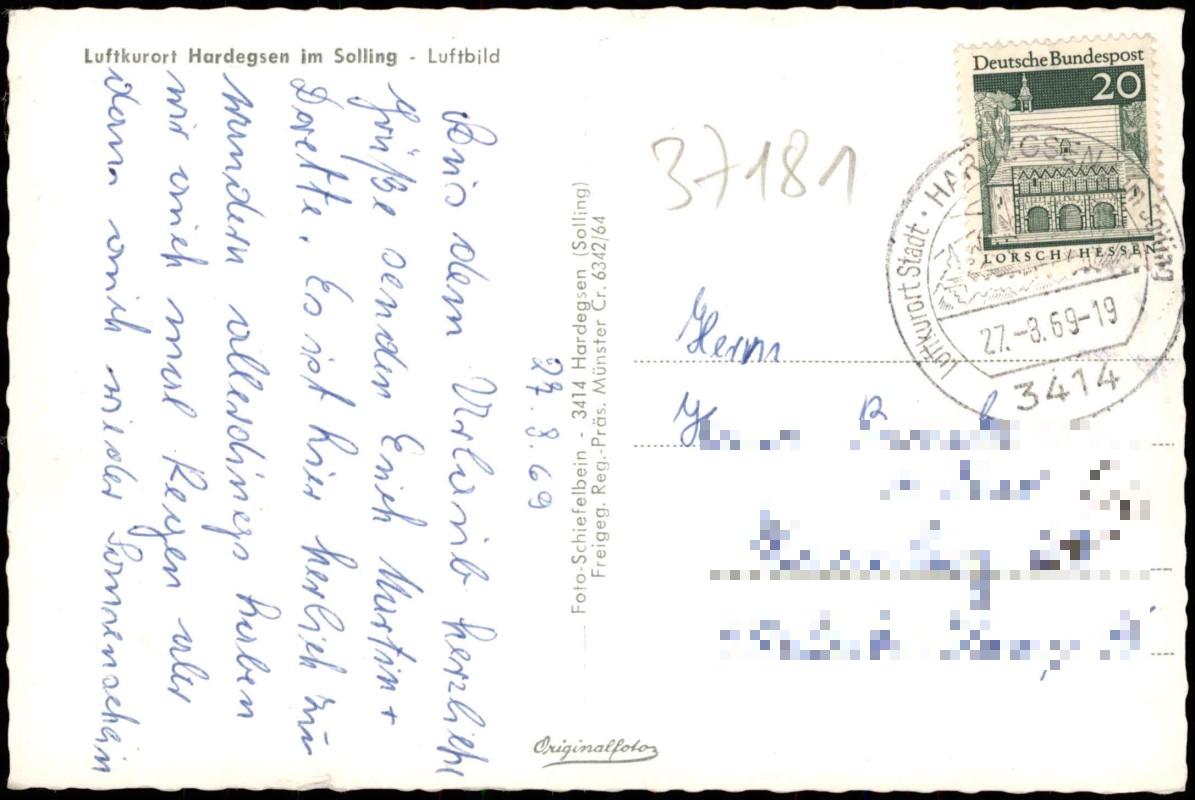 Luftkurort Hardegsen im Solling - Luftbild
27.8.69
Aus dem Urlaub herzliche
Grüße senden Euch Martin +
Dorette. Es ist hier herlich zu
wandern allerdings haben
wir auch mal Regen aber
dann auch wieder Sonnenschein
Foto-Schiefelbein - 3414 Hardegsen (Solling)
Freigeg. Reg.-Präs. Münster Cr. 6342/64
Originalfoto
37181
Deutsche Bundespost
20
LORSCH/HESSEN
Luftkurort Stadt · HARDEGSEN IM SOLLING
27.-8.69-19
3414
Herrn